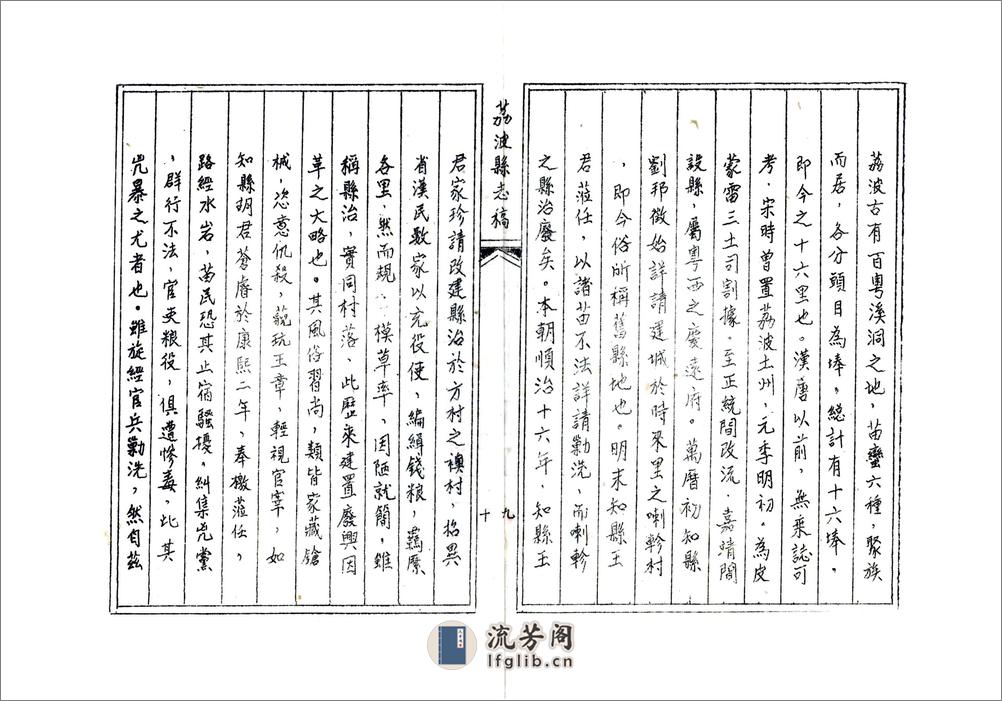 荔波古有百粵溪洞之地，苗蠻六種，聚族
而居，各分頭目為埲，總計有十六埲，
即今之十六里也。漢唐以前，無乘誌可
考，宋時曾置荔波土州，元季明初。為皮
蒙雷三土司割據。至正統間改流．嘉靖間
設縣，屬粵西之慶遠府。萬曆初知縣
劉邦徵始詳請建城於時來里之喇軫村
，即今俗所稱舊縣地也。明末知縣王
君蒞任，以諸苗不法詳請勦洗，而喇軫
之縣治廢矣。本朝順治十六年，知縣王
荔波縣志稿
九
十
君家珍請改建縣治於方村之樉村，招異
省漢民數家以充役使，編緝錢粮，羈縻
各里，然而規模草率，因陋就簡，雖
稱縣治，實同村落、此歷來建置廢興因
革之大略也。其風俗習尚，類皆家藏鎗
械，恣意仇殺，藐玩王章，輕視官宰，如
知縣胡君蒼睿於康熙二年，奉檄蒞任，
路經水岩，苗民恐其止宿騷擾。糾集兇黨
，群行不法，官吏粮役，俱遭慘毒，此其
兇暴之尤者也。雖旋經官兵勦洗，然自茲
流芳阁
lfglib.cn